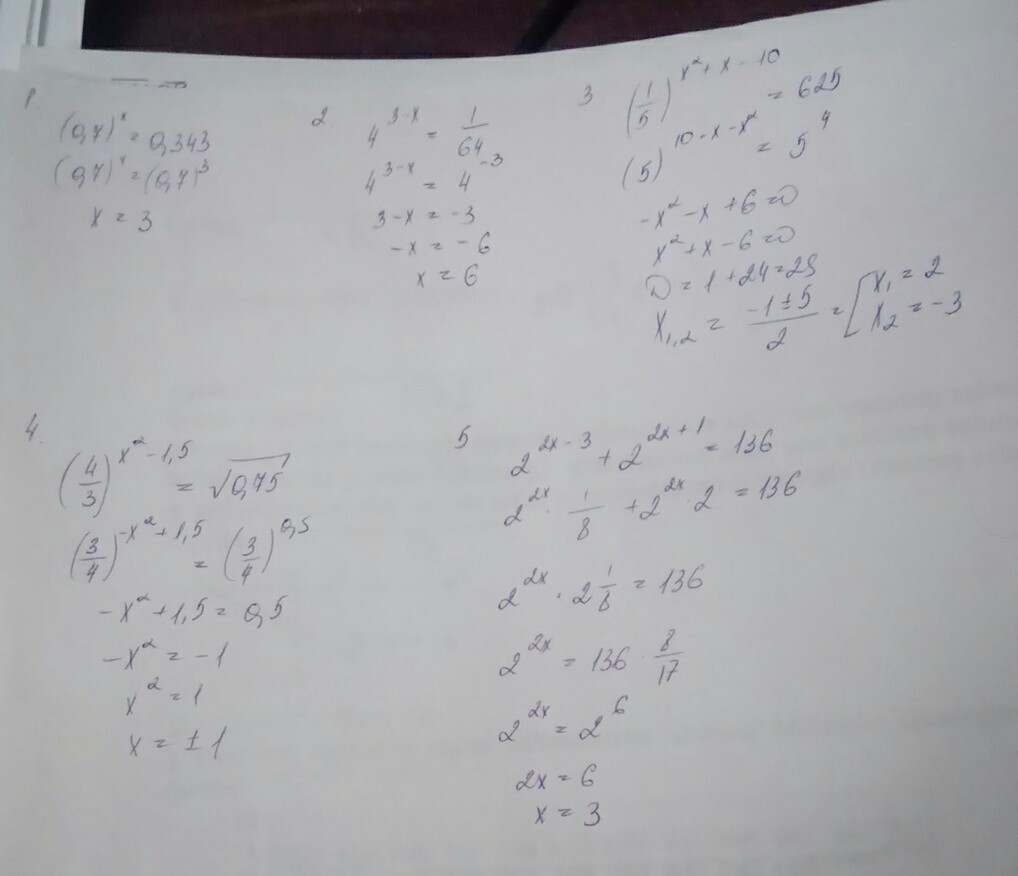 1.
(0,7)^x = 0,343
(0,7)^x = (0,7)^3
x = 3
2
4^{3-x} = 1/64
4^{3-x} = 4^{-3}
3-x = -3
-x = -6
x = 6
3
(1/5)^{x²+x-10} = 625
(5)^{10-x-x²} = 5^4
-x²-x+6=0
x²+x-6=0
D = 1+24=25
x_{1,2} = (-1±5)/2 = [x_1 = 2
x_2 = -3
4.
(4/3)^{x²-1,5} = √0,75
(3/4)^{-x²+1,5} = (3/4)^{0,5}
-x²+1,5 = 0,5
-x² = -1
x² = 1
x = ±1
5
2^{2x-3} + 2^{2x+1} = 136
2^{2x} · 1/8 + 2^{2x} · 2 = 136
2^{2x} · 2 1/8 = 136
2^{2x} = 136 · 8/17
2^{2x} = 2^6
2x = 6
x = 3